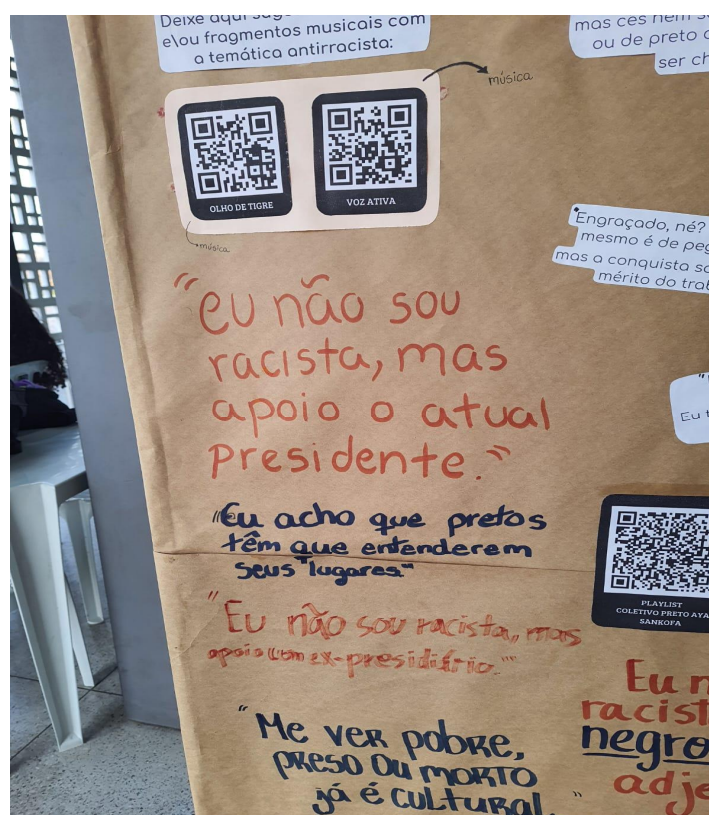 Deixe aqui
e\ou fragmentos musicais com
a temática antirracista:
música
OLHO DE TIGRE
VOZ ATIVA
música
mas ces nem
ou de preto
ser
"Engraçado, né?
mesmo é de
mas a conquista
mérito do
"eu não sou
racista, mas
apoio o atual
presidente."
Eu
"Eu acho que pretos
têm que entenderem
seus "lugares""
PLAYLIST
COLETIVO PRETO
SANKOFA
"Eu não sou racista, mas
apoio um ex-presidiário."
Eu
negro
"Me ver pobre,
preso ou morto
já é cultural."